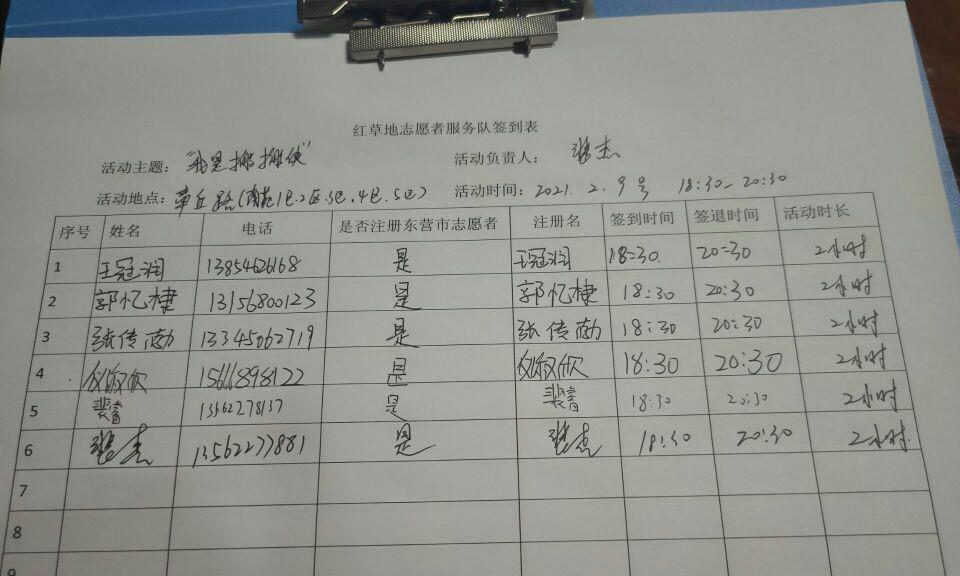 红草地志愿者服务队签到表
活动主题："我是搬搬侠" 活动负责人：张杰
活动地点：章丘路(南苑1区.2区.3区.4区.5区) 活动时间：2021.2.9号 18:30-20:30
序号 姓名 电话 是否注册东营市志愿者 注册名 签到时间 签退时间 活动时长
1 王冠润 13854626168 是 王冠润 18:30 20:30 2小时
2 郭忆棣 13156800123 是 郭忆棣 18:30 20:30 2小时
3 张传勋 13345062719 是 张传勋 18:30 20:30 2小时
4 15666898122 是 18:30 20:30 2小时
5 13562278137 是 18:30 20:30 2小时
6 张杰 13562277881 是 张杰 18:30 20:30 2小时
7
8
9